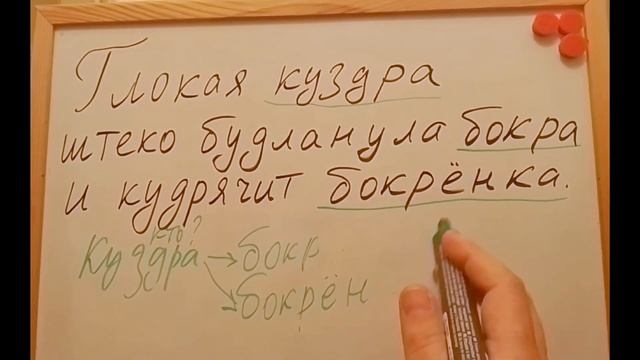 Глокая куздра
штеко будланула бокра
и кудрячит бокрёнка.
кто?
Куздра → бокр
бокрён